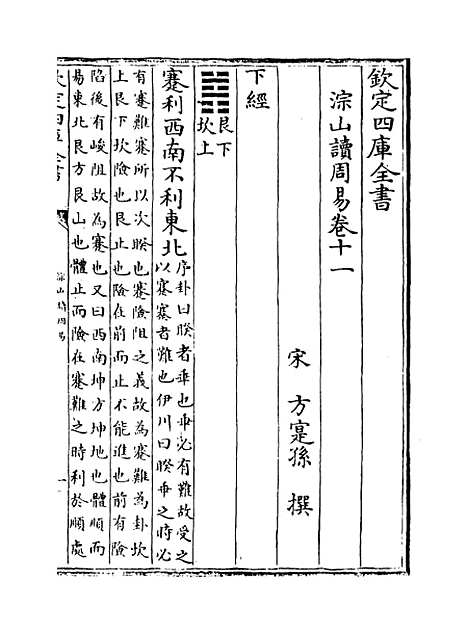 欽定四庫全書
淙山讀周易卷十一
宋 方寔孫 撰
下經
艮下
坎上
蹇利西南不利東北
序卦曰睽者乖也乖必有難故受之
以蹇蹇者難也伊川曰睽乖之時必
有蹇難蹇所以次睽也蹇險阻之義故為蹇難為卦坎
上艮下坎險也艮止也險在前而止不能進也前有險
陷後有峻阻故為蹇也又曰西南坤方坤地也體順而
易東北艮方艮山也體止而險在蹇難之時利於順處
欽定四庫全書
淙山讀周易
一